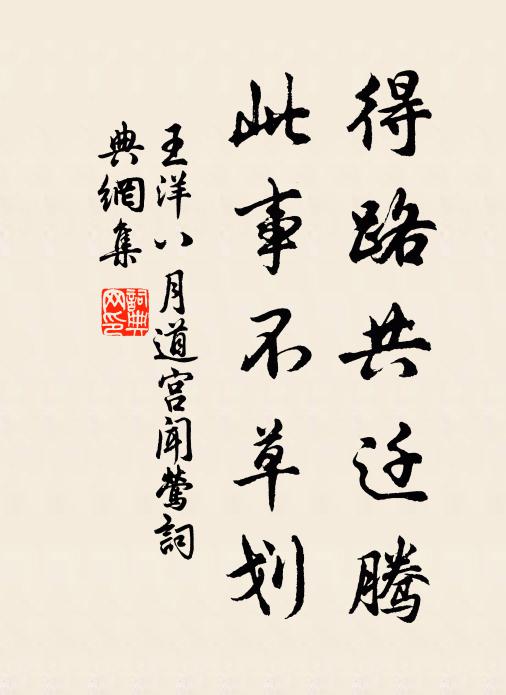 得路共迁腾
此事不草划
王洋八月道宫闻莺詞
典網集
詞典网印